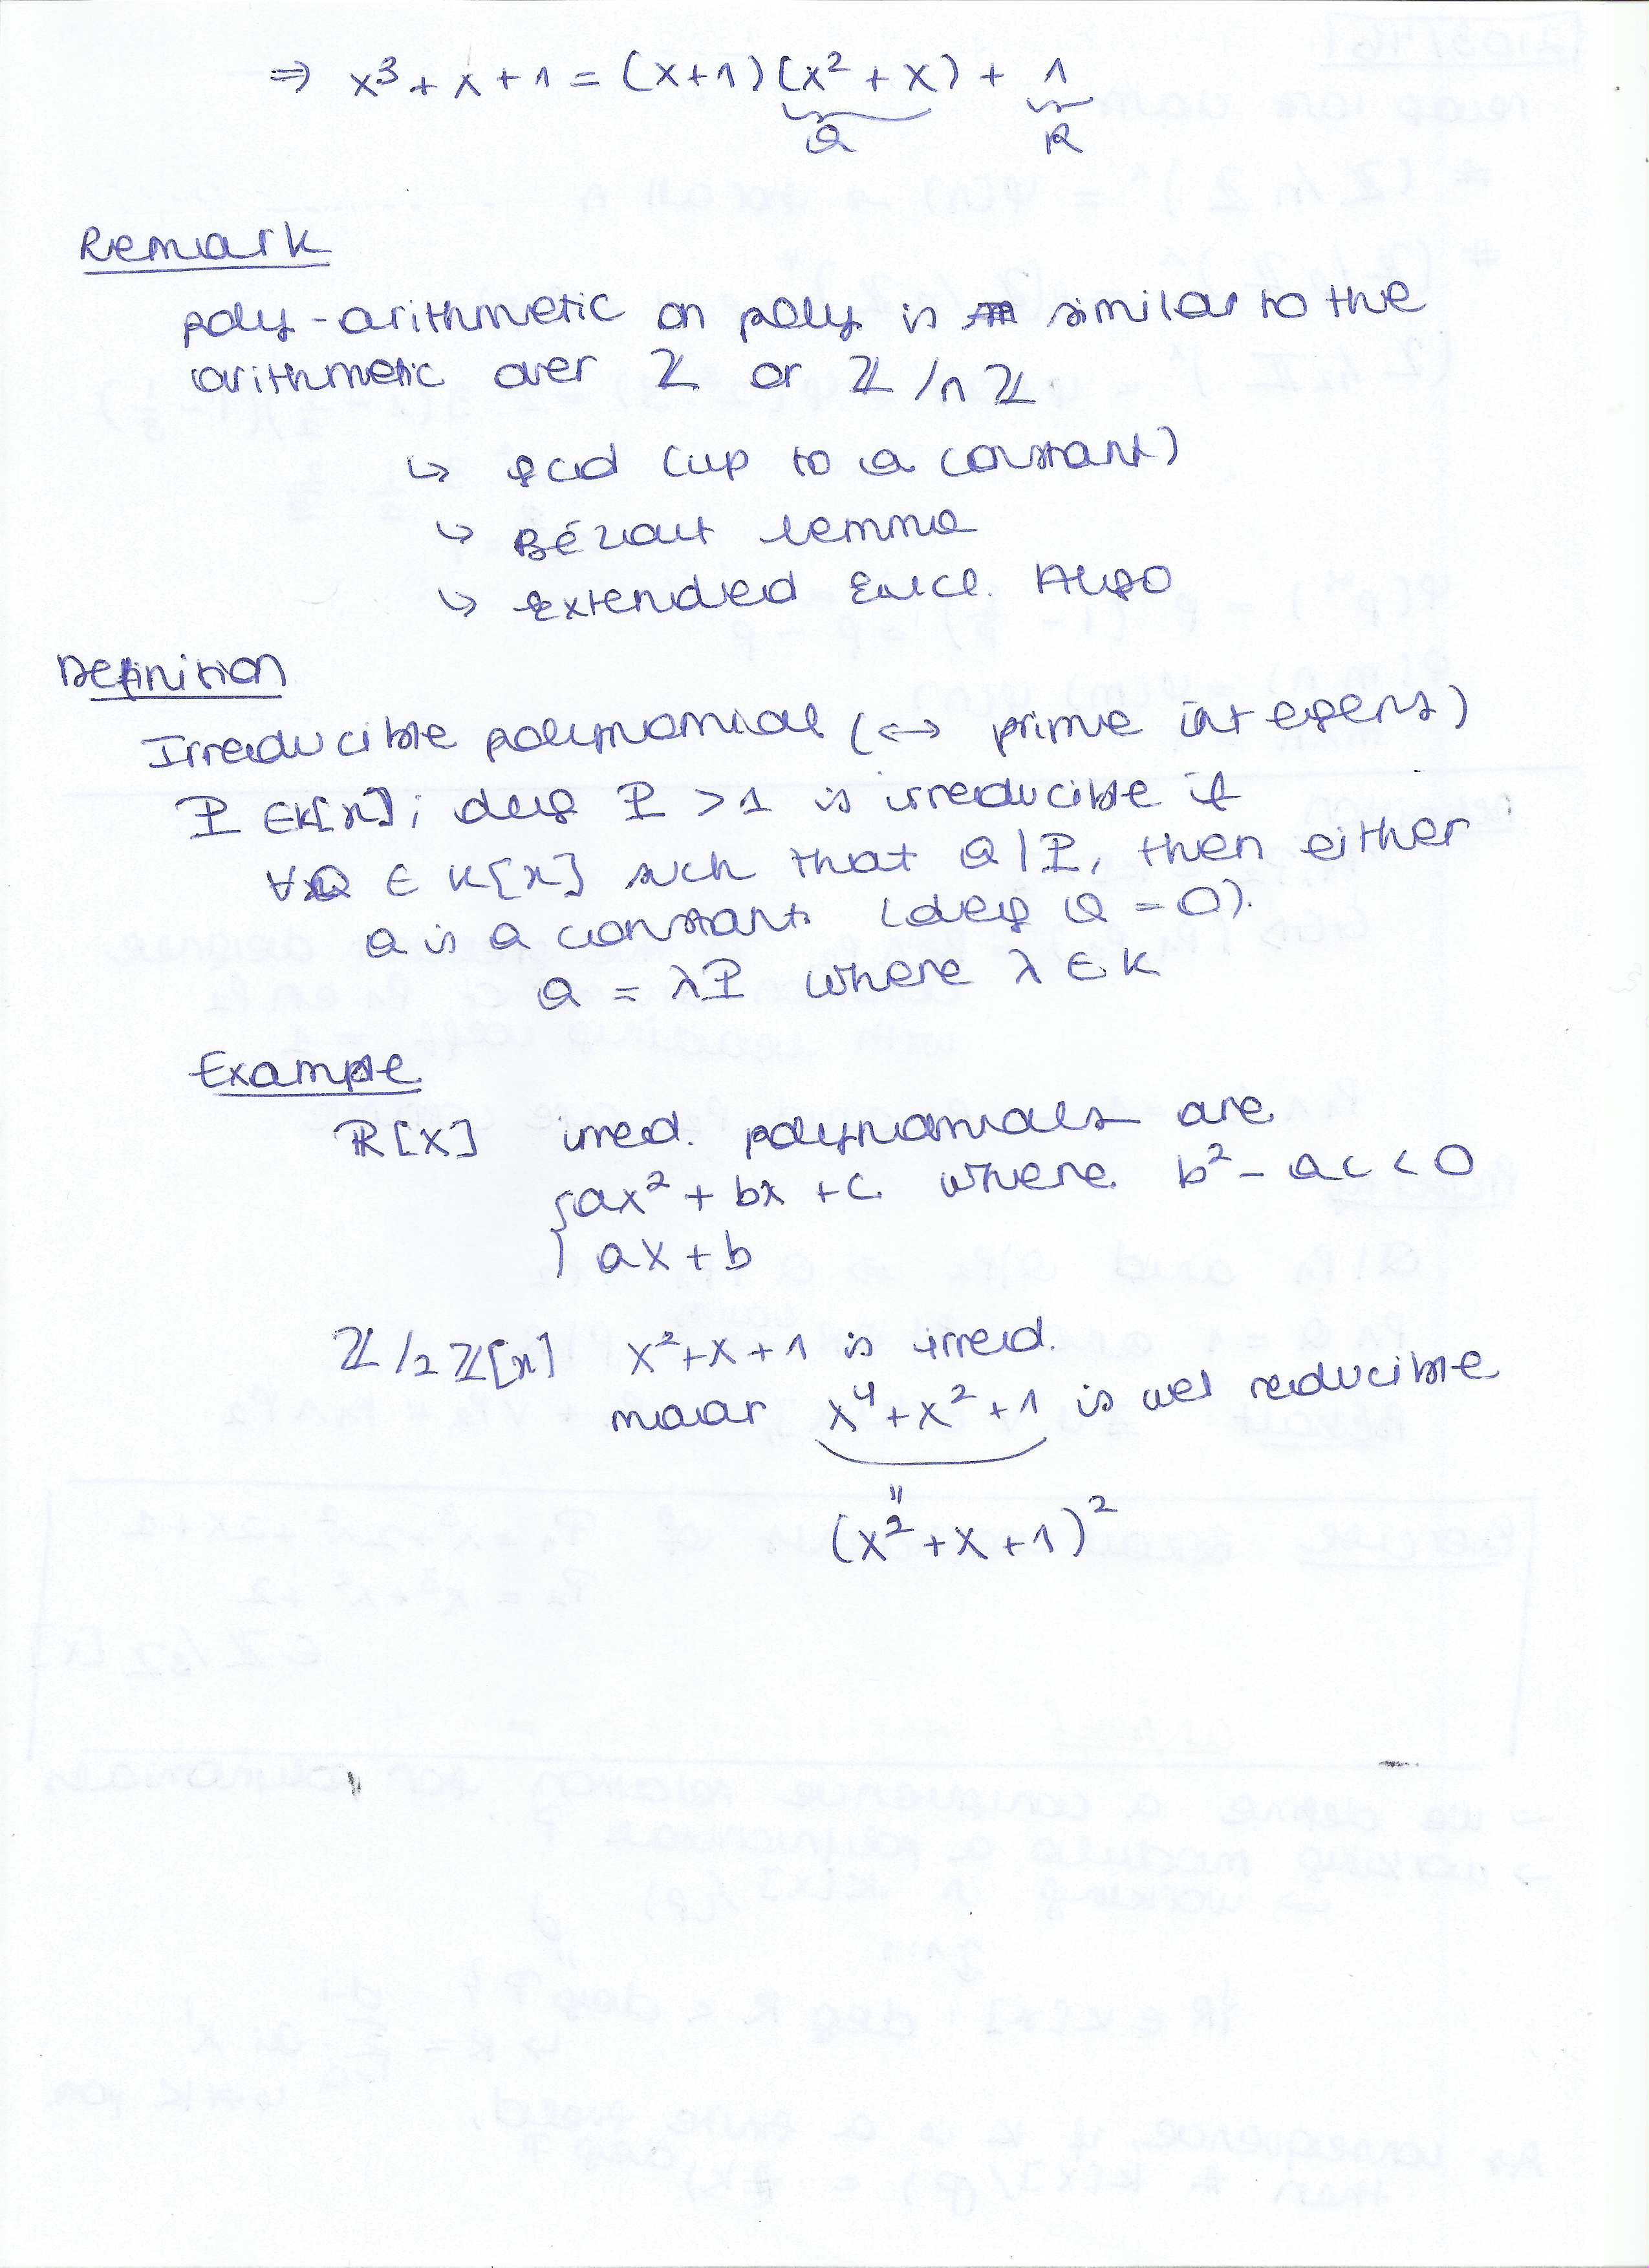 ⇒ x³ + x + 1 = (x+1)(x² + x) + 1
Q R
Remark
poly-arithmetic on poly is similar to the
arithmetic over ℤ or ℤ/nℤ
↳ gcd (up to a constant)
↳ Bézout lemma
↳ Extended Eucl. Algo
Definition
Irreducible polynomial (↔ prime integers)
P ∈ K[x]; deg P > 1 is irreducible if
∀Q ∈ K[x] such that Q|P, then either
Q is a constant. (deg Q = 0).
Q = λP where λ ∈ K
Example
ℝ[X] irred. polynomials are
{ax² + bx + c. where b² - ac < 0
ax + b
ℤ/2ℤ[x] x²+x+1 is irred.
maar x⁴+x²+1 is wel reducible
=
(x²+x+1)²